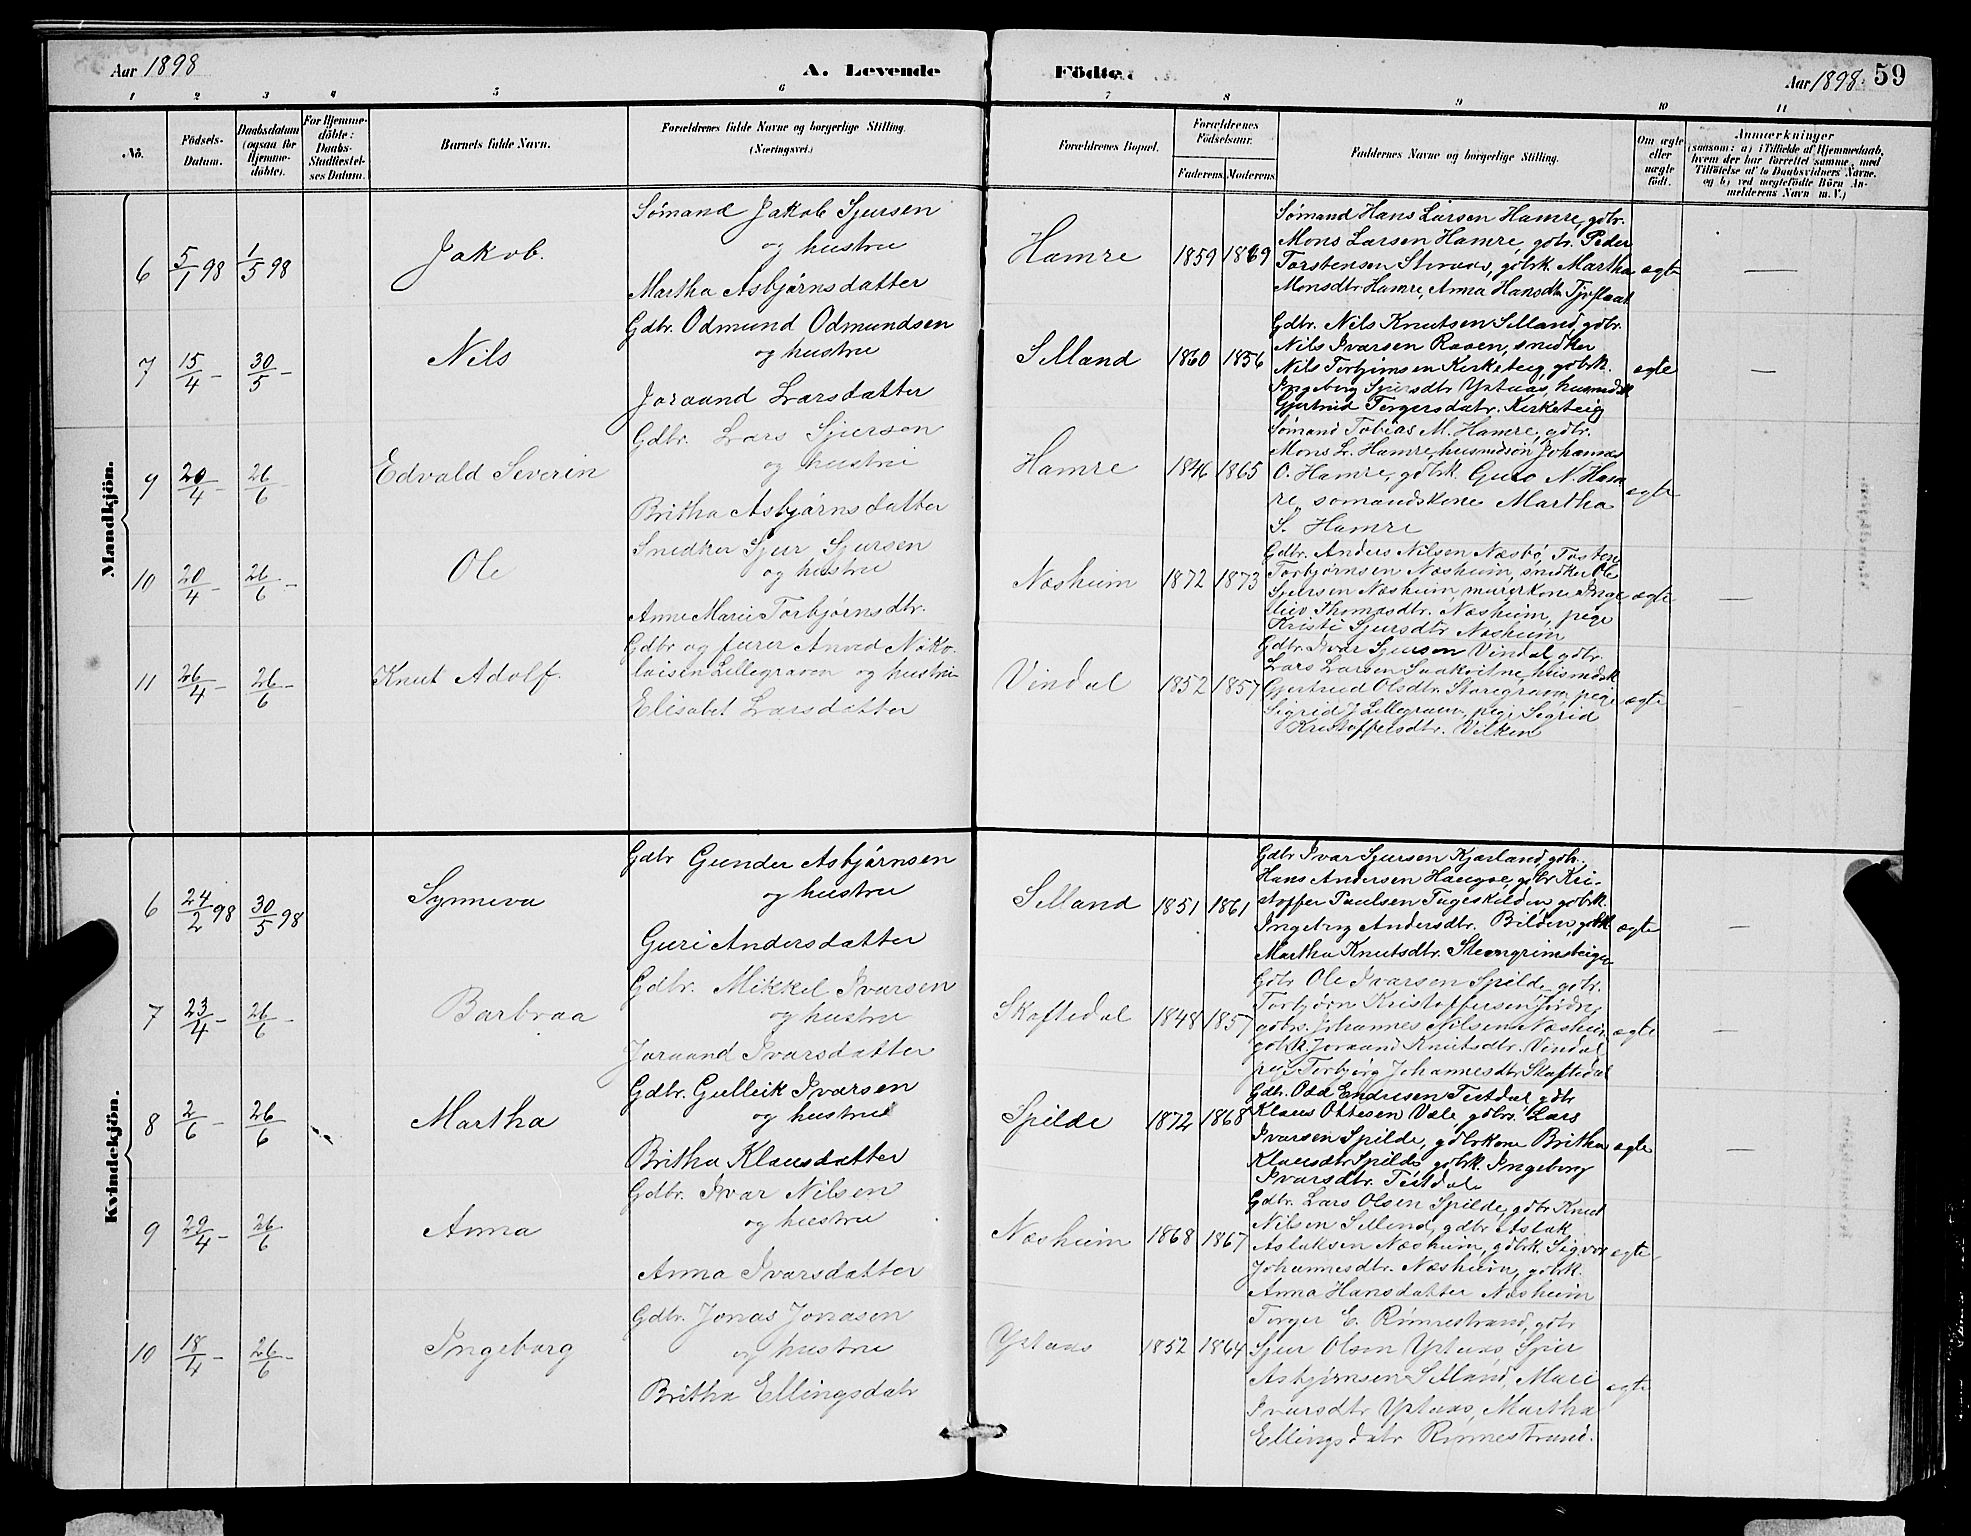 Aar 1898
A. Levende
Födte.
Aar 1898. 59
1 2 3 4 5 6 7 8 9 10 11
No.
Födsels-
Datum.
Daabsdatum
(ogsaa for
Hjemme-
döbte).
For Hjemme-
döbte:
Daabs-
Stadfæstel-
ses Datum.
Barnets fulde Navn.
Forældrenes fulde Navne og borgerlige Stilling.
(Næringsvei.)
Forældrenes Bopæl.
Forældrenes
Födselsaar.
Faderens Moderens
Faddernes Navne og borgerlige Stilling.
Om ægte
eller
uægte
født.
Anmærkninger
(saasom: a) i Tilfælde af Hjemmedaab,
hvem der har forrettet samme, med
Tilföielse af to Daabsvidners Navne.
og b) ved uægtefödte Börn An-
melderens Navn m. V.)
Mandkjön.
6 5/1 98 1/5 98 Jakob.
Sømand Jakob Sjursen
og hustru
Martha Asbjørnsdatter
Hamre 1859 1869
Sømand Hans Larsen Hamre, gdbr.
Mons Larsen Hamre, gdbr. Peder
Torstensen Steraas, gdbrk. Martha
Monsdtr Hamre, Anna Hansdtr Tjoflaat
ægte —
7 15/4 – 30/5 – Nils
Gdbr. Odmund Odmundsen
og hustru
Joraand Larsdatter
Selland 1860 1856
Gdbr. Nils Knutsen Selland, gdbr.
Nils Ivarsen Raaen, snedker
Nils Torbjørnsen Kirketeig, gdbrk.
Ingeborg Sjursdtr Ystaas, husmdsk
Gjertrud Torgersdatr. Kirketeig
ægte —
9 20/4 – 26/6 – Edvald Severin
Gdbr. Lars Sjursen
og hustru
Britha Asbjørnsdatter
Hamre 1846 1865
Sømand Tobias M. Hamre, gdbr.
Mons L. Hamre, husmdsøn Johannes
O. Hamre, gdbrk. Guro N. Ham
re, sømandskone Martha
S. Hamre
ægte
10 20/4 – 26/6 – Ole
Snedker Sjur Sjursen
og hustru
Anne Marie Torbjørnsdtr.
Næsheim 1872 1873
Gdbr. Anders Nilsen Næsbø, Tosten
Torbjørnsen Næsheim, snedker Ole
Sjursen Næsheim, murerkone Inge
Thomasdtr. Næsheim, pige
Kristi Sjursdtr Næsheim
ægte —
11 26/4 – 26/6 – Knut Adolf.
Gdbr og furer Anved Niko-
laisen Lillegraven og hustru
Elisabet Larsdatter
Vindal 1852 1857
Gdbr. Ivar Sjurson Vindal, gdbr.
Lars Larsen Saakvitne, husmdsk
Gjertrud Olsdtr. Storegraven, pige
Sigrid J. Lillegraven, pige Sigrid
Kristoffersdtr. Vilken
ægte —
Kvindekjön.
6 24/2 98 30/5 98 Synneva
Gdbr Gunder Asbjørnsen
og hustru
Guri Andersdatter
Selland 1851 1861
Gdbr Ivar Sjursen Kjærland, gdbr.
Hans Andersen Haugse, gdbr Kri-
stoffer Paulsen Tugeskilden, gdbrk.
Ingebrg Andersdtr. Bilden, gdbrk
Martha Knutsdtr. Steingrimsteigen
ægte —
7 23/4 – 26/6 – Barbraa
Gdbr. Mikkel Ivarsen
og hustru
Joraand Ivarsdatter
Skaftedal 1848 1857
Gdbr Ole Ivarsen Spilde, gdbr.
Torbjørn Kristoffersen Jordre,
gdbrs. Johannes Nilsen Næsheim,
gdbrk. Joraand Knutsdtr. Vindal
pige Torbjørg Johannesdtr Skaftedal
ægte —
8 2/6 – 26/6 Martha
Gdbr. Gulleik Ivarsen
og hustru
Britha Klausdatter
Spilde 1872 1868
Gdbr. Odd Endresen Teitdal, gdbr
Klaus Ottesen Vale, gdbrs. Lars
Ivarsen Spilde, gdbrkone Britha
Klausdtr Spilde, gdbrk. Ingeborg
Ivarsdtr. Teitdal
ægte —
9 29/4 – 26/6 Anna
Gdbr. Ivar Nilsen
og hustru
Anna Ivarsdatter
Næsheim 1868 1867
Gdbr. Lars Olsen Spilde, gdbr Knut
Nilsen Selland, gdbr Aslak
Aslaksen Næsheim, gdbrk. Sigvor
Johannesdtr. Næsheim, gdbrk.
Anna Hansdatter Næsheim
ægte
10 18/4 – 26/6 – Ingeborg
Gdbr. Jonas Jonasen
og hustru
Britha Ellingsdatr
Ystaas 1852 1864
Torger E. Rømmestrand, gdbr
Sjur Olsen Ystaas, Sjur
Asbjørnsen Selland, Mari
Ivarsdtr Ystaas, Martha
Ellingsdatr Rømmestrand.
ægte